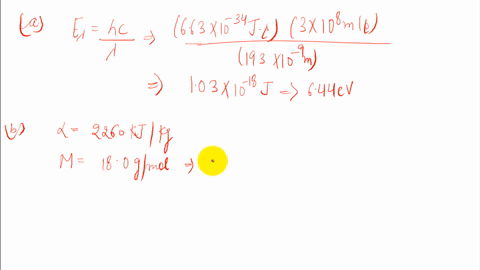 (a) E₁ = hc/λ ⇒ (6.63 × 10⁻³⁴ J·s) (3 × 10⁸ m/s) / (193 × 10⁻⁹ m)
⇒ 1.03 × 10⁻¹⁸ J → 6.44 eV
(b) L = 2260 KJ/Kg
M = 18.0 g/mol ⇒